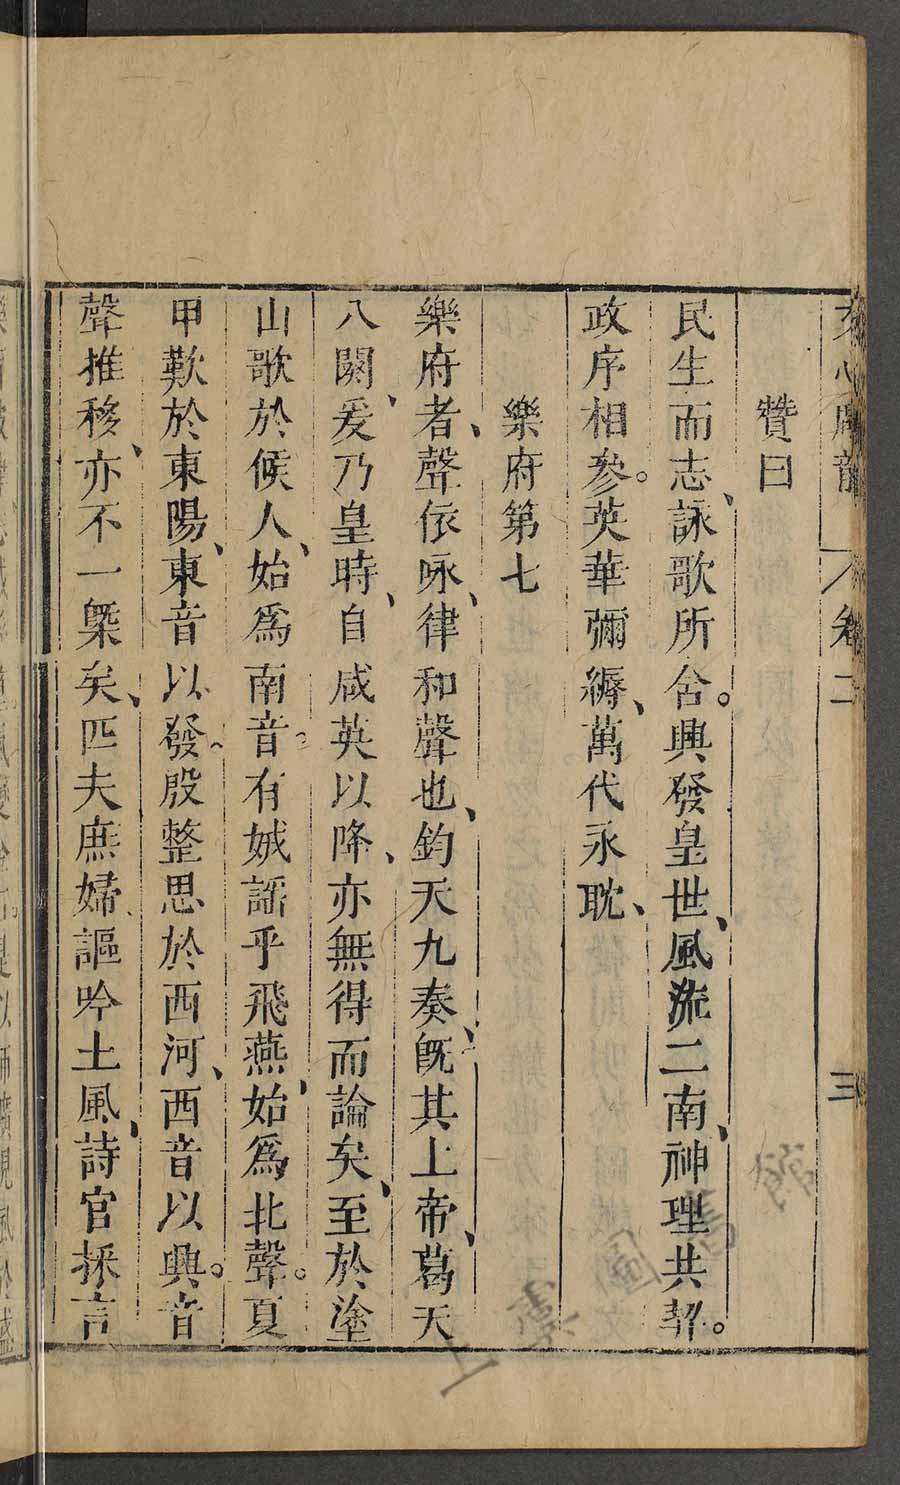 文心雕龍 卷二 三
贊曰
民生而志、詠歌所含。興發皇世、風流二南、神理共契。
政序相參。英華彌縟、萬代永耽、
樂府第七
樂府者、聲依咏、律和聲也、鈞天九奏、旣其上帝、葛天
八闋、爰乃皇時、自咸英以降、亦無得而論矣、至於塗
山歌於候人、始爲南音。有娀謡乎飛燕、始爲北聲。夏
甲歎於東陽、東音以發。殷整思於西河、西音以興。音
聲推移、亦不一槩矣、匹夫庶婦、謳吟土風、詩官採言